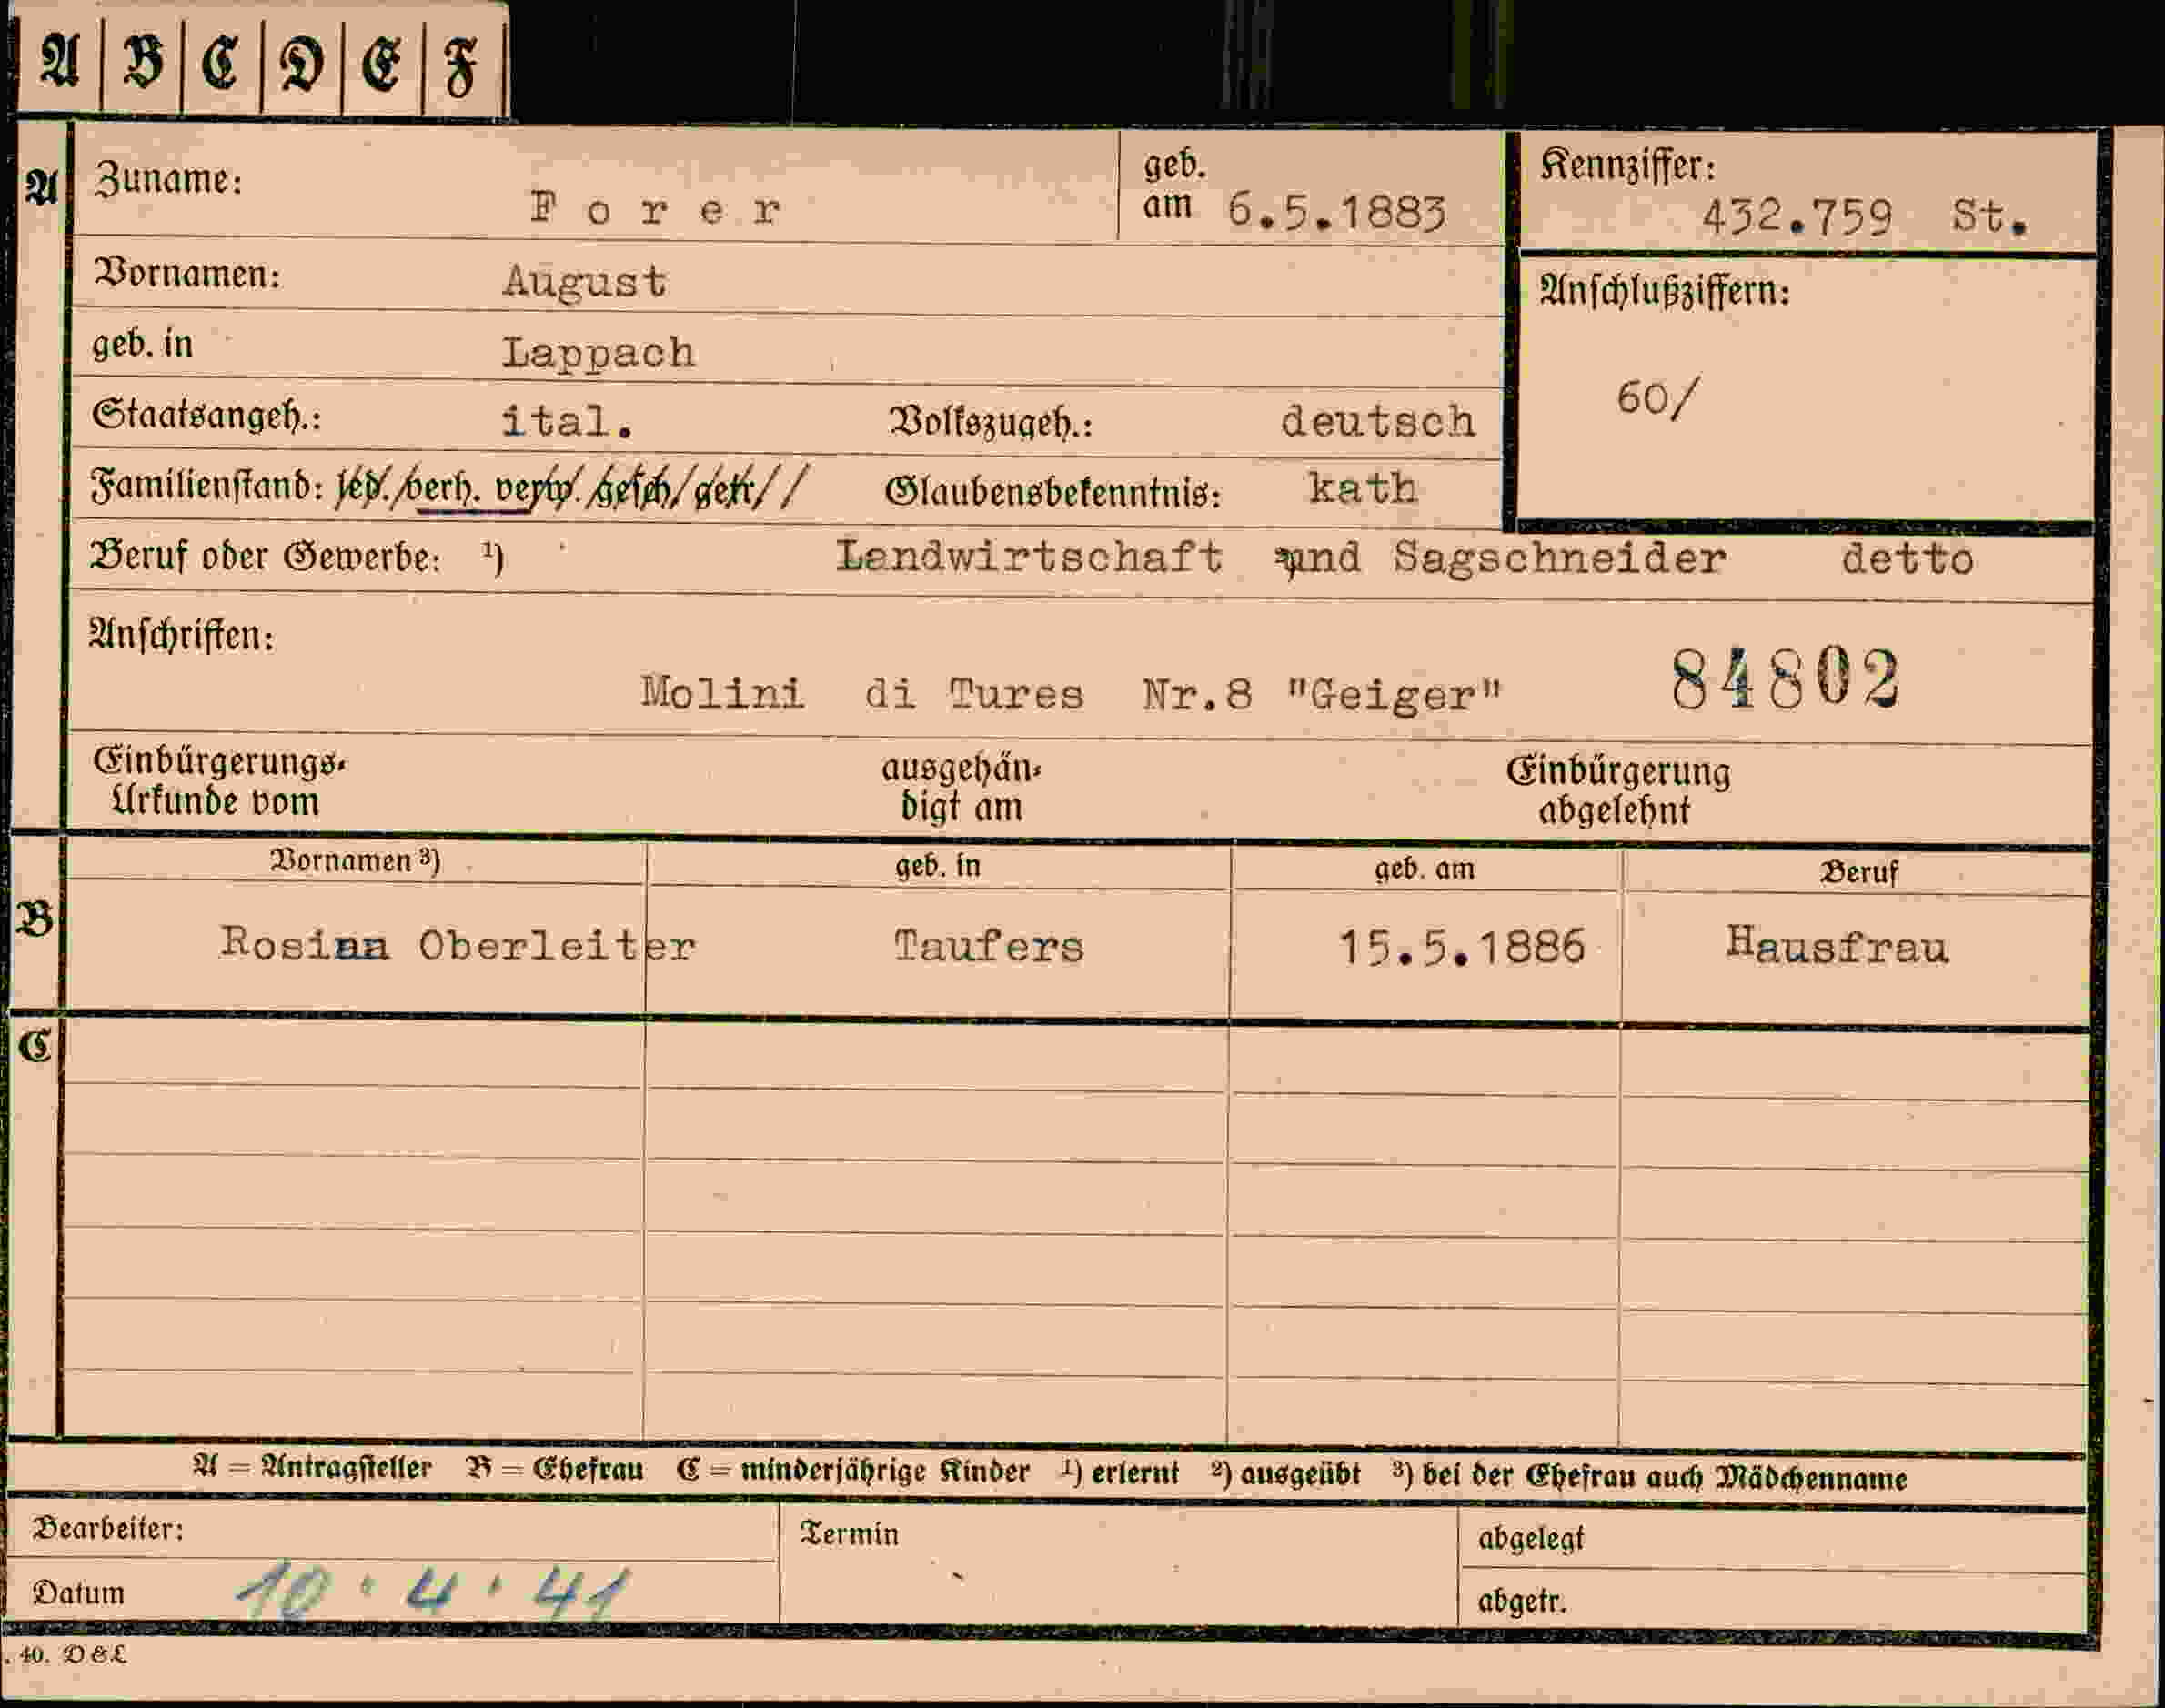 A B C D E F
A Zuname: Forer geb. am 6.5.1883 Kennziffer: 432.759 St.
Vornamen: August Anschlußziffern:
geb. in Lappach 60/
Staatsangeh.: ital. Volkszugeh.: deutsch
Familienstand: led./verh. verw. /gesch/ getr// Glaubensbekenntnis: kath
Beruf oder Gewerbe: ¹) Landwirtschaft und Sagschneider detto
Anschriften:
Molini di Tures Nr.8 "Geiger" 84802
Einbürgerungs- ausgehän- Einbürgerung
Urkunde vom digt am abgelehnt
Vornamen ³) geb. in geb. am Beruf
B Rosina Oberleiter Taufers 15.5.1886 Hausfrau
C
A = Antragsteller B = Ehefrau C = minderjährige Kinder ¹) erlernt ²) ausgeübt ³) bei der Ehefrau auch Mädchenname
Bearbeiter: Termin abgelegt
Datum 10.4.41 abgetr.
. 40. D&L